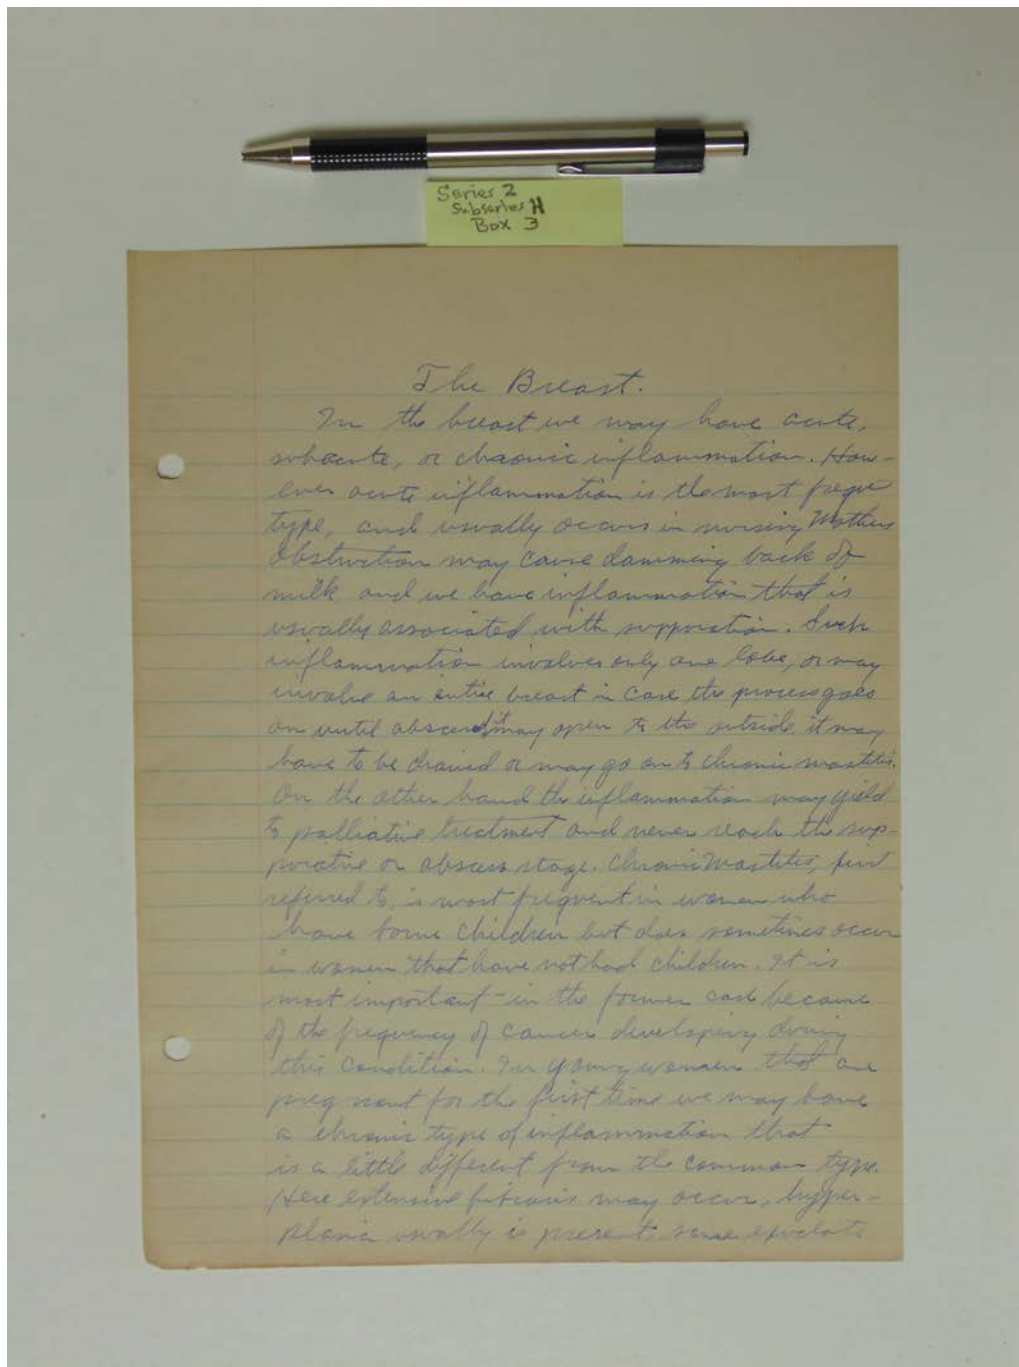 Series 2
Subseries H
Box 3
The Breast.
In the breast we may have acute,
subacute, or chronic inflammation. How-
ever acute inflammation is the most freque
type, and usually occurs in nursing Mothers
Obstruction may cause damming back of
milk and we have inflammation that is
usually associated with suppuration. Such
inflammation involves only one lobe, or may
involve an entire breast in case the process goes
on until abscess it may open to the outside it may
have to be drained or may go on to chronic mastitis.
On the other hand the inflammation may yield
to palliative treatment and never reach the sup-
purative or abscess stage. Chronic Mastitis, first
referred to, is most frequent in women who
have borne children but does sometimes occur
in women that have not had children. It is
most important in the former case because
of the frequency of cancer developing during
this condition. In young women that are
pregnant for the first time we may have
a chronic type of inflammation that
is a little different from the common type.
Here extensive fibrosis may occur, hyper-
plasia usually is present some exudate